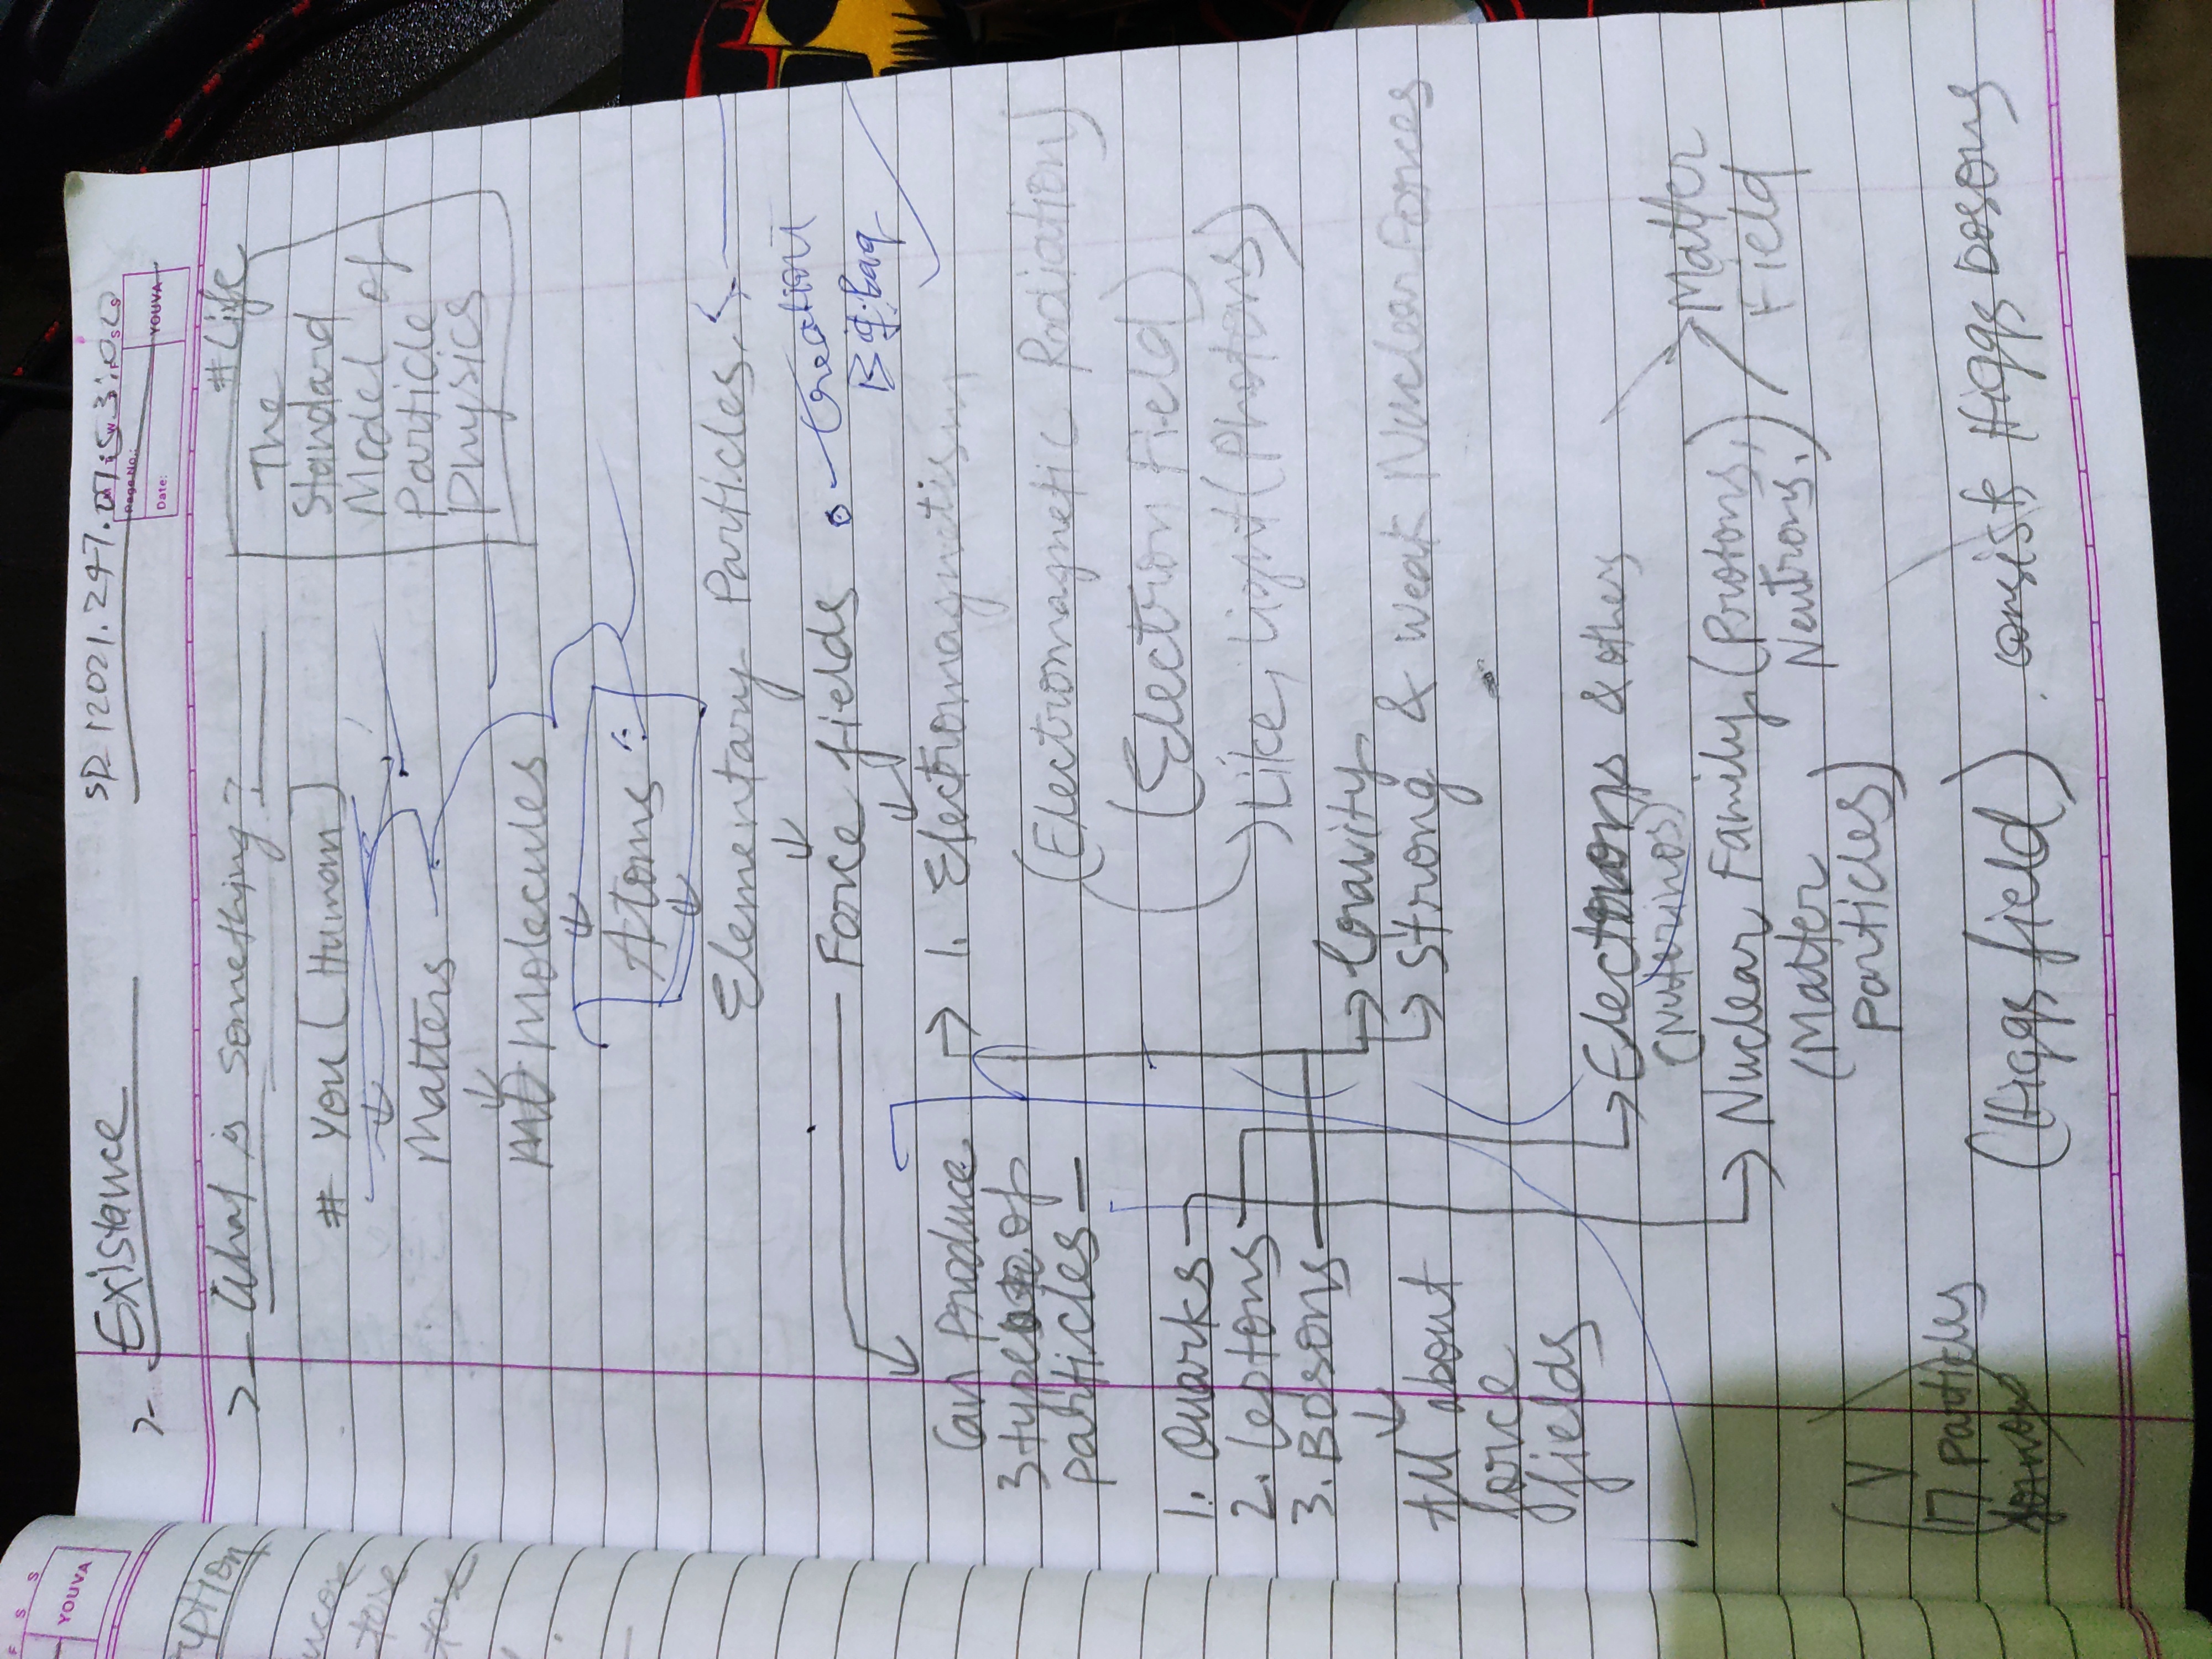 F S S
YOUVA
Existance
SD 12021.247.07:53:00
M T W T F S S
Page No.:
Date:
YOUVA
ription
What is something?
#Life
The
Standard
Model of
Particle
Physics
# You [Human]
Matters
Molecules
Atoms
Elementary Particles
Force fields
Creation
Big Baq
Can produce
3 types of
particles —
1. Quarks
2. Leptons
3. Bosons
All about
force
fields
1. Electromagnetism
(Electromagnetic Radiation)
(Electron Field)
Like, Light (Photons)
Gravity
Strong & Weak Nuclear Forces
Electrons & others
(Nuterinos)
Nuclear Family (Protons,
Neutrons.)
(Matter
particles)
Matter
Field
17 particles
(Higgs field) consists Higgs Bosons